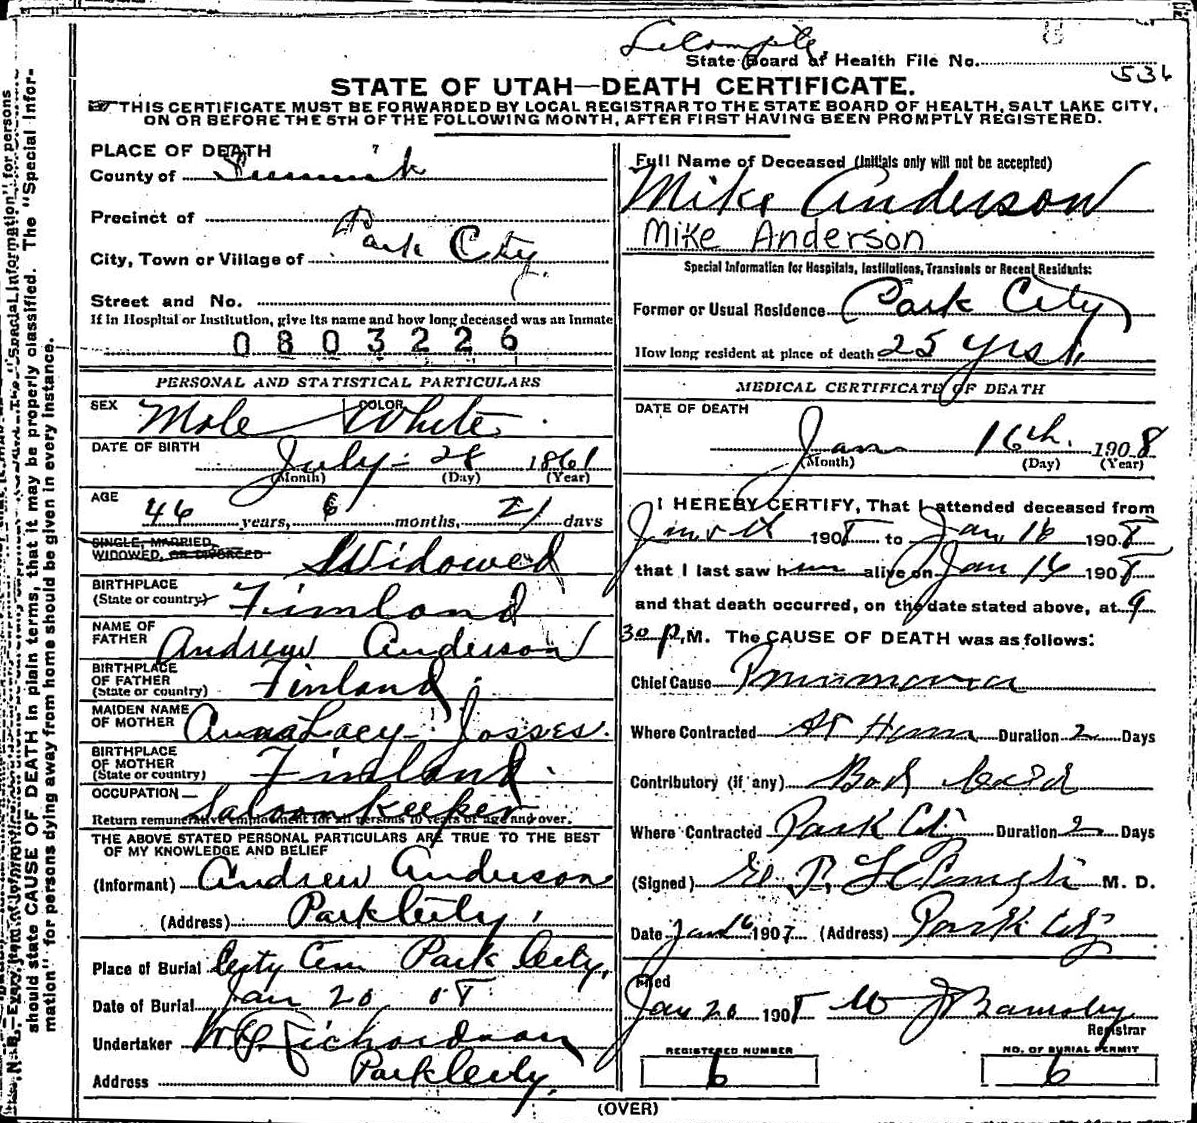 LeCompte
State Board of Health File No. 536
STATE OF UTAH—DEATH CERTIFICATE.
THIS CERTIFICATE MUST BE FORWARDED BY LOCAL REGISTRAR TO THE STATE BOARD OF HEALTH, SALT LAKE CITY,
ON OR BEFORE THE 5TH OF THE FOLLOWING MONTH, AFTER FIRST HAVING BEEN PROMPTLY REGISTERED.
should state CAUSE OF DEATH in plain terms, that it may be properly classified. The "Special Infor-
mation" for persons dying away from home should be given in every instance.
PLACE OF DEATH
County of Summit
Precinct of
City, Town or Village of Park City
Street and No.
If in Hospital or Institution, give its name and how long deceased was an inmate
0803226
PERSONAL AND STATISTICAL PARTICULARS
SEX Male COLOR White
DATE OF BIRTH July 28 1861
(Month) (Day) (Year)
AGE 46 years, 6 months, 21 days
SINGLE, MARRIED,
WIDOWED, OR DIVORCED Widowed
BIRTHPLACE
(State or country) Finland
NAME OF
FATHER Andrew Anderson
BIRTHPLACE
OF FATHER
(State or country) Finland
MAIDEN NAME
OF MOTHER Anna Lacy Josses
BIRTHPLACE
OF MOTHER
(State or country) Finland
OCCUPATION Saloon Keeper
Return remunerative employment for all persons 10 years of age and over.
THE ABOVE STATED PERSONAL PARTICULARS ARE TRUE TO THE BEST
OF MY KNOWLEDGE AND BELIEF
(Informant) Andrew Anderson
(Address) Park City
Place of Burial City Cem Park City,
Date of Burial Jan 20 08
Undertaker W Richardson
Address Park City,
Full Name of Deceased (Initials only will not be accepted)
Mike Anderson
Mike Anderson
Special Information for Hospitals, Institutions, Transients or Recent Residents:
Former or Usual Residence Park City
How long resident at place of death 25 yrs
MEDICAL CERTIFICATE OF DEATH
DATE OF DEATH
Jan 16th. 1908
(Month) (Day) (Year)
I HEREBY CERTIFY, That I attended deceased from
1908 to Jan 16 1908
that I last saw him alive on Jan 16 1908
and that death occurred, on the date stated above, at 9
30 P. M. The CAUSE OF DEATH was as follows:
Chief Cause Pneumonia
Where Contracted At Home Duration 2 Days
Contributory (if any) Bad Cold
Where Contracted Park City Duration 2 Days
(Signed) M. D.
Date Jan 16 1907 (Address) Park City
Filed
Jan 20 1908 Registrar
REGISTERED NUMBER
6
NO. OF BURIAL PERMIT
6
(OVER)